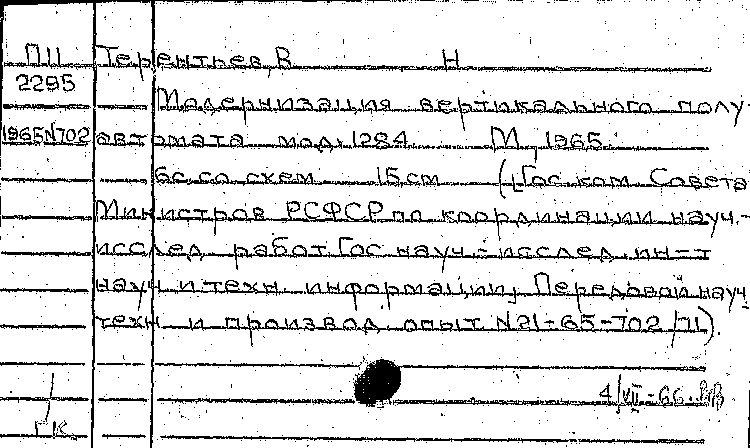 П11 Терентьев, В Н
2295 Модернизация вертикального полу-
1965N702 автомата мод. 1284. М, 1965.
6с. со схем 15 см ([Гос. ком. Совета
Министров РСФСР по координации науч.-
исслед. работ. Гос науч.-исслед. ин-т
науч и техн. информации, Передовой науч
техн и производ. опыт N21-65-702/71).
4/VII-66.